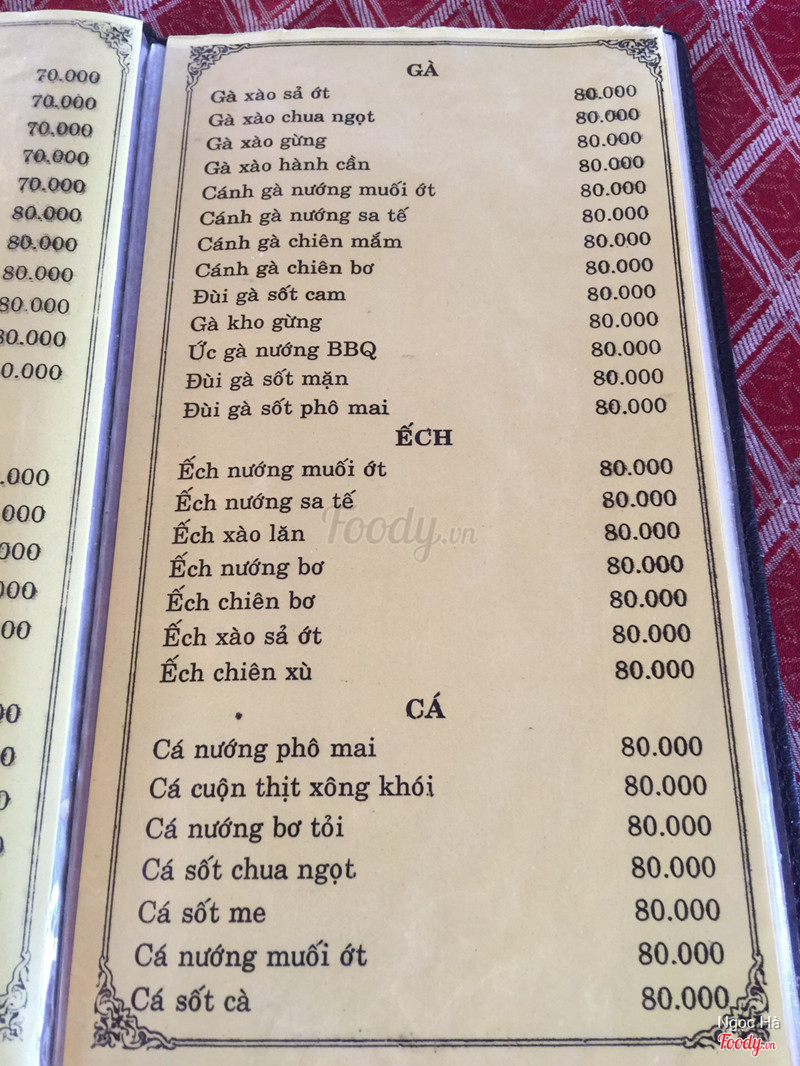 70.000
70.000
70.000
70.000
70.000
80.000
80.000
80.000
80.000
GÀ
Gà xào sả ớt 80.000
Gà xào chua ngọt 80.000
Gà xào gừng 80.000
Gà xào hành cần 80.000
Cánh gà nướng muối ớt 80.000
Cánh gà nướng sa tế 80.000
Cánh gà chiên mắm 80.000
Cánh gà chiên bơ 80.000
Đùi gà sốt cam 80.000
Gà kho gừng 80.000
Ức gà nướng BBQ 80.000
Đùi gà sốt mặn 80.000
Đùi gà sốt phô mai 80.000
ẾCH
Ếch nướng muối ớt 80.000
Ếch nướng sa tế 80.000
Ếch xào lăn 80.000
Ếch nướng bơ 80.000
Ếch chiên bơ 80.000
Ếch xào sả ớt 80.000
Ếch chiên xù 80.000
CÁ
Cá nướng phô mai 80.000
Cá cuộn thịt xông khói 80.000
Cá nướng bơ tỏi 80.000
Cá sốt chua ngọt 80.000
Cá sốt me 80.000
Cá nướng muối ớt 80.000
Cá sốt cà 80.000
Foody.vn
Ngọc Hà
Foody.vn